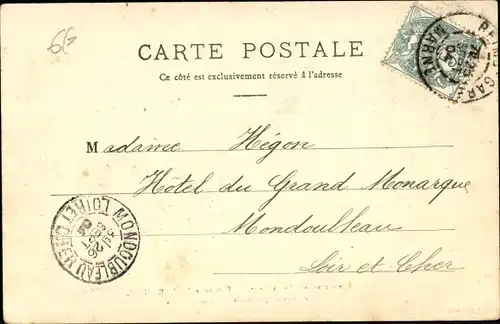 66
CARTE POSTALE
Ce côté est exclusivement réservé à l'adresse
REIMS GARE
MARNE
Madame Hégon
Hôtel du Grand Monarque
Mondoubleau
Loir et Cher
MONDOUBLEAU
LOIR ET CHER